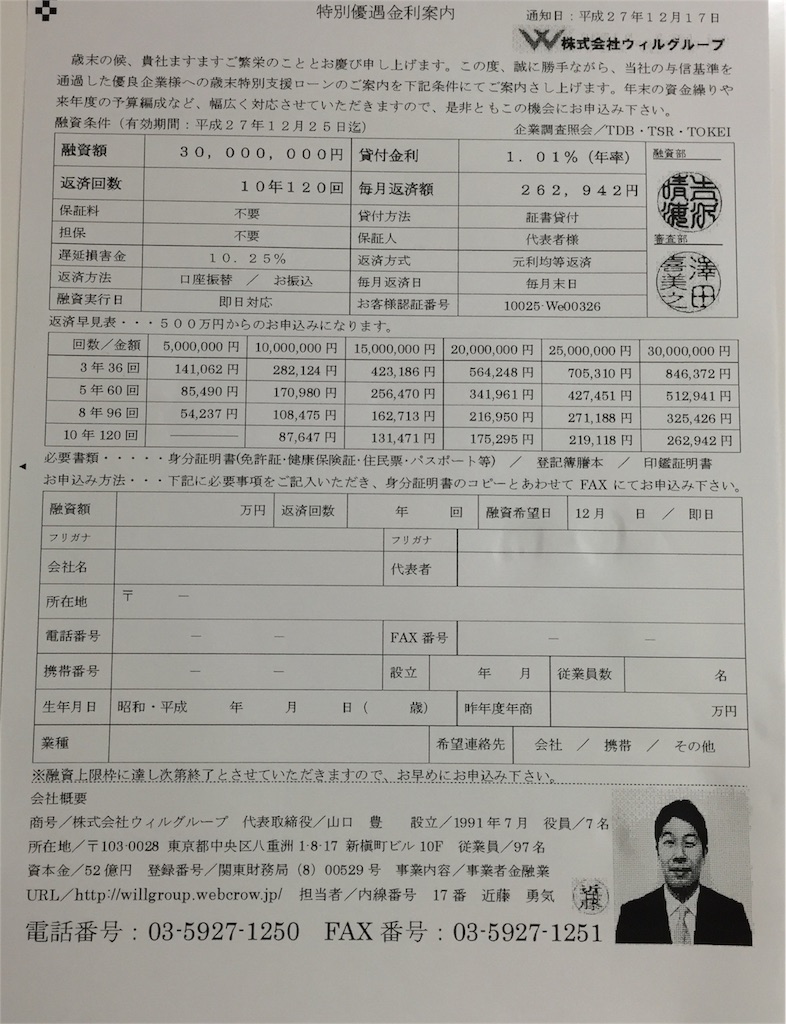 特別優遇金利案内
通知日：平成２７年１２月１７日
W 株式会社ウィルグループ
歳末の候、貴社ますますご繁栄のこととお慶び申し上げます。この度、誠に勝手ながら、当社の与信基準を
通過した優良企業様への歳末特別支援ローンのご案内を下記条件にてご案内さし上げます。年末の資金繰りや
来年度の予算編成など、幅広く対応させていただきますので、是非ともこの機会にお申込み下さい。
融資条件（有効期間：平成２７年１２月２５日迄）　企業調査照会／TDB・TSR・TOKEI
融資額　３０，０００，０００円　貸付金利　１．０１％（年率）　融資部
返済回数　１０年１２０回　毎月返済額　２６２，９４２円
保証料　不要　貸付方法　証書貸付
担保　不要　保証人　代表者様　審査部
遅延損害金　１０．２５％　返済方式　元利均等返済　澤田喜美之
返済方法　口座振替　／　お振込　毎月返済日　毎月末日
融資実行日　即日対応　お客様認証番号　10025-We00326
返済早見表・・・５００万円からのお申込みになります。
回数／金額　5,000,000円　10,000,000円　15,000,000円　20,000,000円　25,000,000円　30,000,000円
３年36回　141,062円　282,124円　423,186円　564,248円　705,310円　846,372円
５年60回　85,490円　170,980円　256,470円　341,961円　427,451円　512,941円
８年96回　54,237円　108,475円　162,713円　216,950円　271,188円　325,426円
10年120回　―――　87,647円　131,471円　175,295円　219,118円　262,942円
必要書類・・・・・身分証明書(免許証・健康保険証・住民票・パスポート等)　／　登記簿謄本　／　印鑑証明書
お申込み方法・・・下記に必要事項をご記入いただき、身分証明書のコピーとあわせてFAXにてお申込み下さい。
融資額　万円　返済回数　年　回　融資希望日　12月　日　／　即日
フリガナ　フリガナ
会社名　代表者
所在地　〒　－
電話番号　－　－　FAX番号　－　－
携帯番号　－　－　設立　年　月　従業員数　名
生年月日　昭和・平成　年　月　日（　歳）　昨年度年商　万円
業種　希望連絡先　会社　／　携帯　／　その他
※融資上限枠に達し次第終了とさせていただきますので、お早めにお申込み下さい。
会社概要
商号／株式会社ウィルグループ　代表取締役／山口　豊　設立／1991年７月　役員／７名
所在地／〒103-0028　東京都中央区八重洲1-8-17　新槇町ビル10F　従業員／97名
資本金／52億円　登録番号／関東財務局（8）00529号　事業内容／事業者金融業
URL／http://willgroup.webcrow.jp/　担当者／内線番号　17番　近藤　勇気　近藤
電話番号：03-5927-1250　FAX番号：03-5927-1251